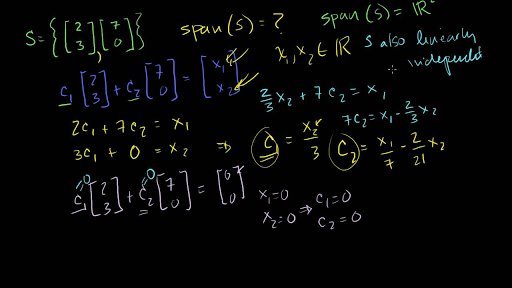 S = {[2 3], [7 0]} span(S) = ? span(S) = ℝ²
x₁, x₂ ∈ ℝ S also linearly
independent
c₁[2 3] + c₂[7 0] = [x₁ x₂]
2/3 x₂ + 7c₂ = x₁
7c₂ = x₁ - 2/3 x₂
2c₁ + 7c₂ = x₁
3c₁ + 0 = x₂ ⇒ c₁ = x₂/3 c₂ = x₁/7 - 2/21 x₂
0 0
c₁[2 3] + c₂[7 0] = [0 0]
x₁=0 c₁=0
x₂=0 ⇒ c₂=0